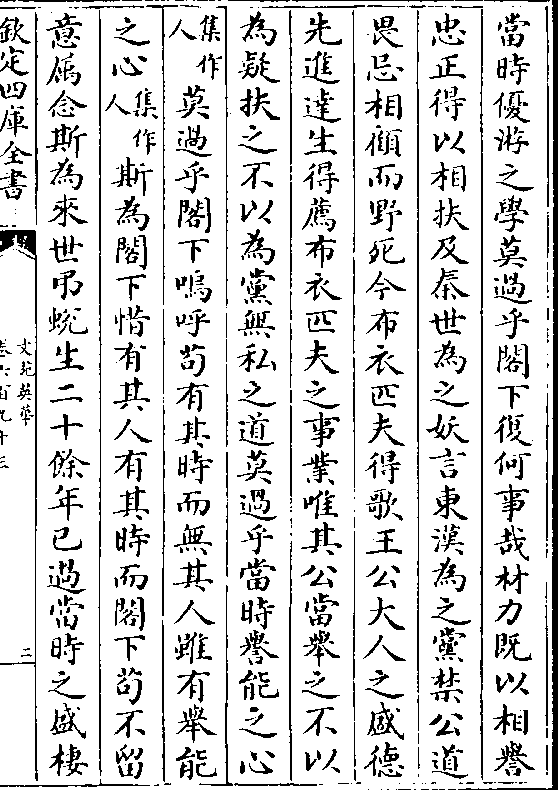 當時優游之學莫過乎閣下復何事哉材力既以相譽
忠正得以相扶及秦世為之妖言東漢為之黨禁公道
畏忌相顧而野死今布衣匹夫得歌王公大人之盛德
先進達生得薦布衣匹夫之事業唯其公當舉之不以
為疑扶之不以為黨無私之道莫過乎當時譽能之心
集作人莫過乎閣下嗚呼苟有其時而無其人雖有舉能
之心集作人斯為閣下惜有其人有其時而閣下苟不留
意屬念斯為來世弔蛻生二十餘年已過當時之盛棲
欽定四庫全書
文苑英華
卷六百九十三
二